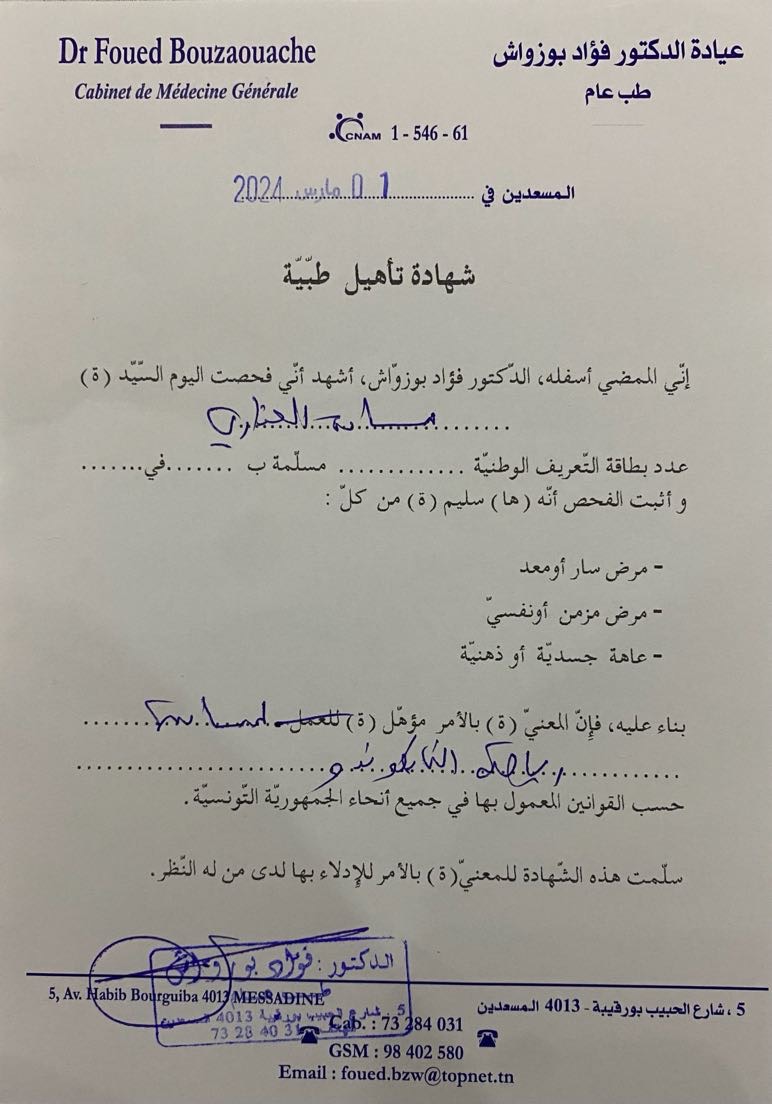 Dr Foued Bouzaouache
عيادة الدكتور فؤاد بوزواش
Cabinet de Médecine Générale
طب عام
CNAM 1 - 546 - 61
المسعدين في ........ 01 مارس 2024
شهادة تأهيل طبّيّة
إنّي الممضي أسفله، الدّكتور فؤاد بوزوّاش، أشهد أنّي فحصت اليوم السّيّد (ة)
عدد بطاقة التّعريف الوطنيّة ............. مسلّمة ب .......في.......
و أثبت الفحص أنّه (ها) سليم (ة) من كلّ :
- مرض سار أومعد
- مرض مزمن أونفسيّ
- عاهة جسديّة أو ذهنيّة
بناء عليه، فإنّ المعنيّ (ة) بالأمر مؤهّل (ة) للعمل
رياضة التايكوندو
حسب القوانين المعمول بها في جميع أنحاء الجمهوريّة التّونسيّة.
سلّمت هذه الشّهادة للمعنيّ(ة) بالأمر للإدلاء بها لدى من له النّظر.
الدكتور : فؤاد بوزواش
5, Av. Habib Bourguiba 4013 MESSADINE
5 ، شارع الحبيب بورقيبة - 4013 المسعدين
5, شارع الحبيب بورقيبة 4013 المسعدين
73 28 40 31
Cab. : 73 284 031
GSM : 98 402 580
Email : foued.bzw@topnet.tn